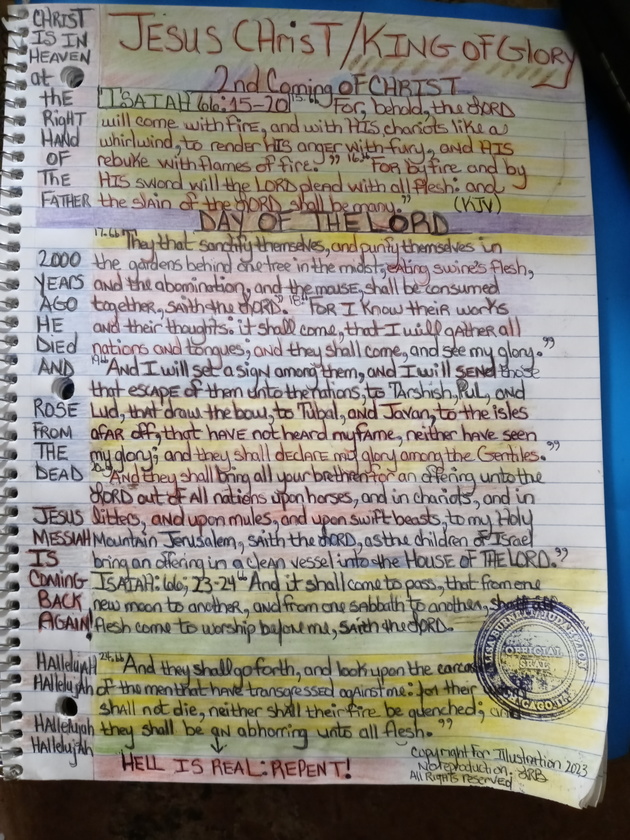 JESUS CHRIST/KING OF GLORY
2nd Coming OF CHRIST
ISAIAH 66:15-20 15.66 For, behold, the LORD
will come with fire, and with HIS chariots like a
whirlwind, to render HIS anger with fury, and HIS
rebuke with flames of fire." 16.66 "For by fire and by
HIS sword will the LORD plead with all flesh: and
the slain of the LORD shall be many." (KJV)
DAY OF THE LORD
17.66 "They that sanctify themselves, and purify themselves in
the gardens behind one tree in the midst, eating swine's flesh,
and the abomination, and the mouse, shall be consumed
together, saith the LORD." "For I know their works
and their thoughts: it shall come, that I will gather all
nations and tongues; and they shall come, and see my glory."
"And I will set a sign among them, and I will SEND those
that escape of them unto the nations, to Tarshish, Pul, and
Lud, that draw the bow, to Tubal, and Javan, to the isles
afar off, that HAVE not heard my fame, neither have seen
my glory; and they shall declare my glory among the Gentiles."
"And they shall bring all your brethren for an offering unto the
LORD out of All nations upon horses, and in chariots, and in
litters, and upon mules, and upon swift beasts, to my Holy
Mountain Jerusalem, saith the LORD, as the children of Israel
bring an offering in a clean vessel into the HOUSE OF THE LORD."
ISAIAH: 66; 23-24 "And it shall come to pass, that from one
new moon to another, and from one sabbath to another, shall all
flesh come to worship before me, saith the LORD.
24.66 "And they shall go forth, and look upon the
of the men that have transgressed against me: for their
shall not die, neither shall their fire be quenched; and
they shall be an abhorring unto all flesh."
HELL IS REAL: REPENT!
CHRIST
IS IN
HEAVEN
at
the
Right
HAND
OF
The
FATHER
2000
YEARS
AGO
HE
Died
AND
ROSE
FROM
THE
DEAD
JESUS
MESSIAH
IS
COMING
BACK
AGAIN!
HAlleluJAH
HAllelujah
Hallelujah
Hallelujah
OFFICIAL
SEAL
Copyright For Illustration 2023
No reproduction.
All Rights reserved